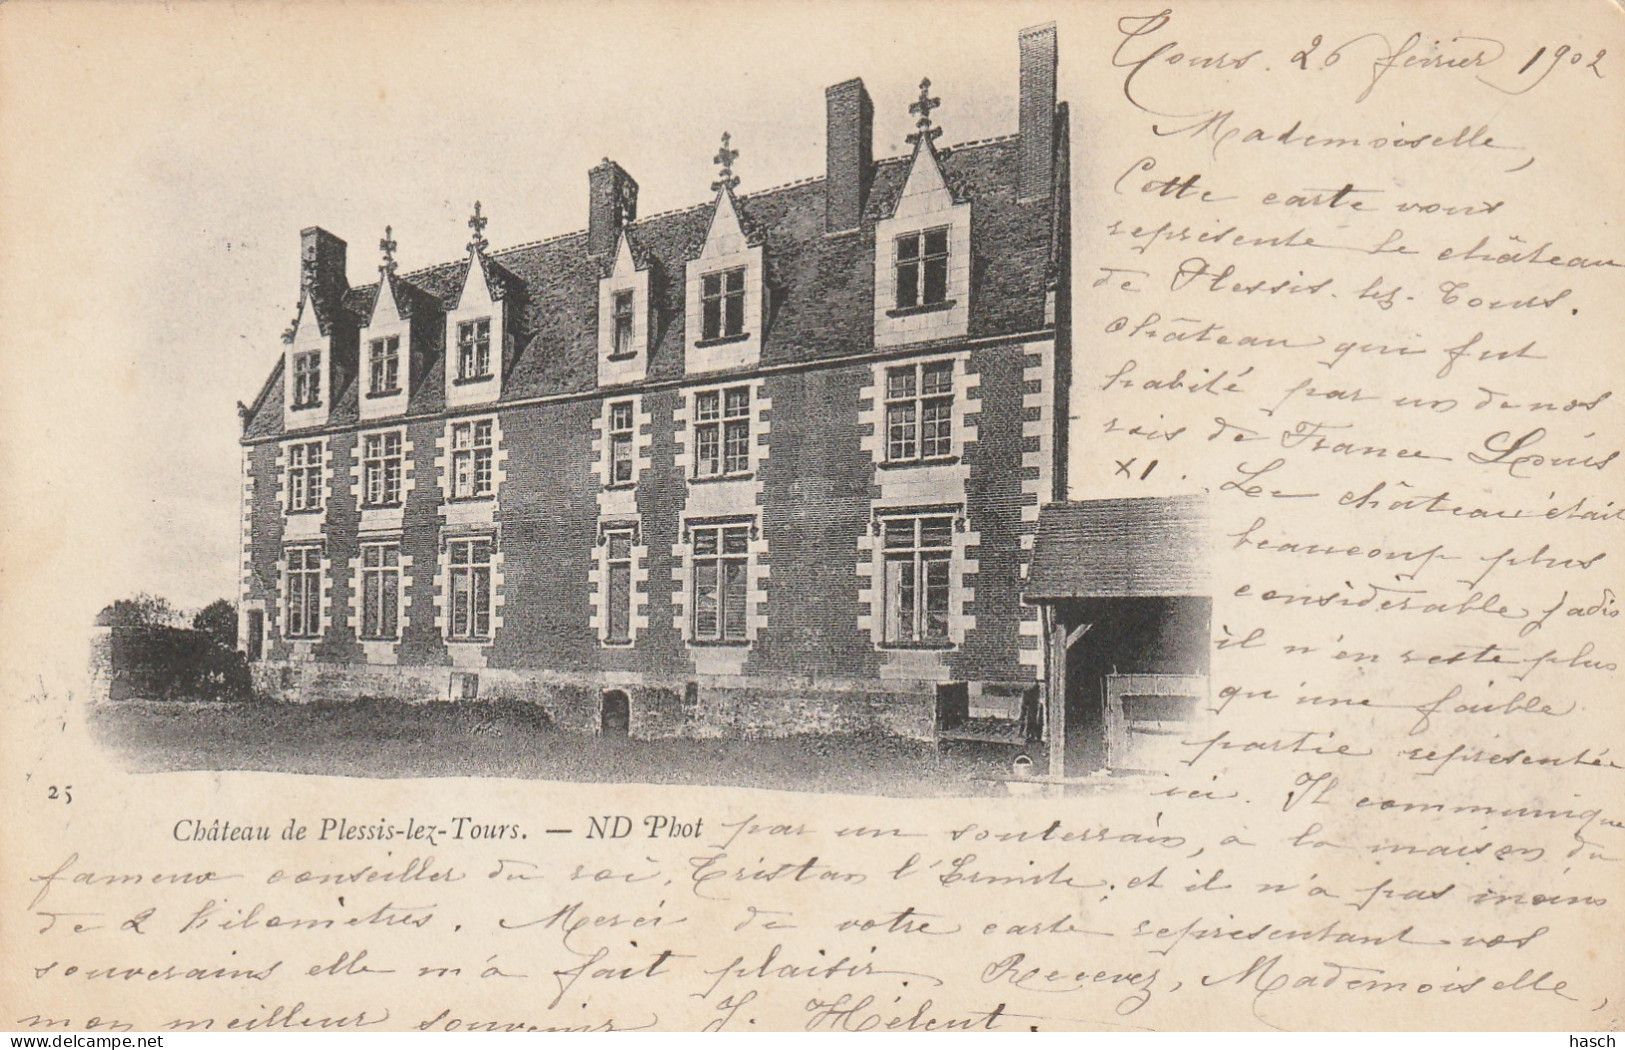 Tours. 26 février 1902
Mademoiselle,
Cette carte vous
représente le château
de Plessis-lez-Tours.
Château qui fut
habité par un de nos
rois de France Louis
XI. Le château était
beaucoup plus
considérable jadis
il n'en reste plus
qu'une faible
partie représentée
ici. Il communique
25
Château de Plessis-lez-Tours. — ND Phot
par un souterrain, à la maison du
fameux conseiller du roi, Tristan l'Ermite, et il n'a pas moins
de 2 kilomètres. Merci de votre carte représentant vos
souverains elle m'a fait plaisir. Recevez, Mademoiselle,
mon meilleur souvenir J.
hasch